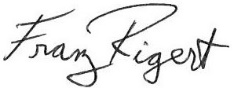 Franz Rigert